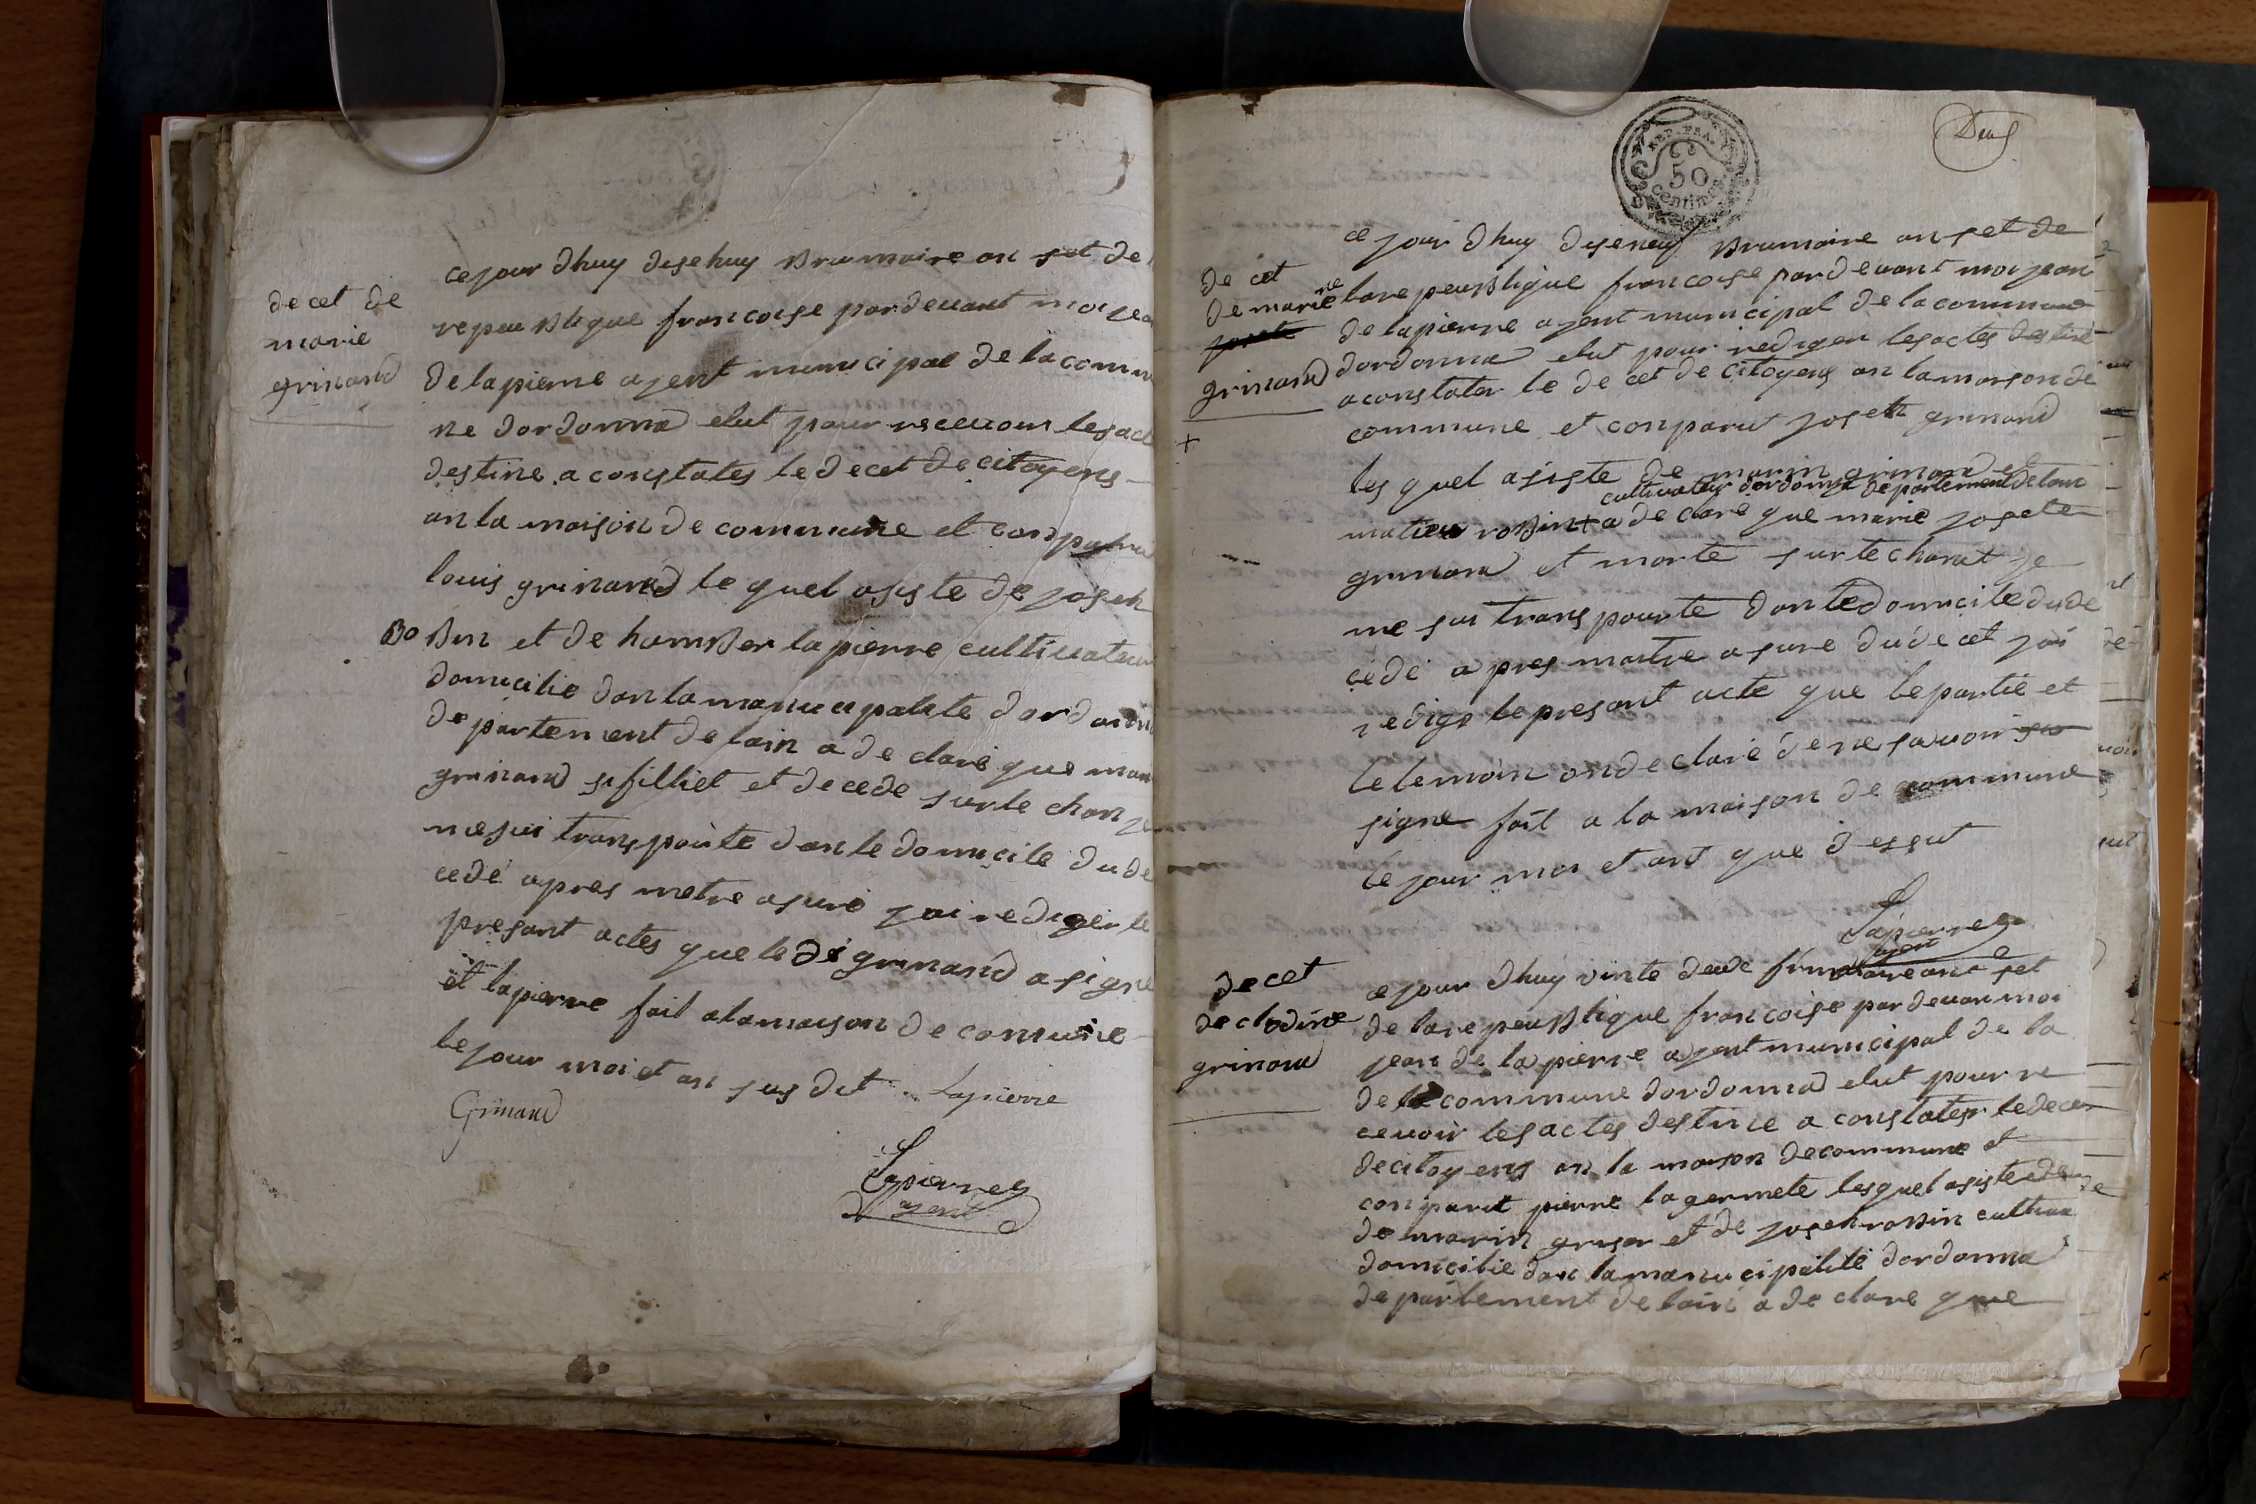 de cet de
marie
grinand
ce jour dhuy dese huy Brumaire an set de
repeublique francoise pardeuant moi jea
de lapierre ajent municipal de la comm
ne dordonna elut pour receuoir les act
destine a constates le decet de citoyens
an la maison de commune et conparu
louis grinand le quel asiste de joseh
Bo Bin et de humBer lapierre cultiuateur
domicilie dan la manucipalite dordonn
departement de lain a de clare que mari
grinand sifilliet et decede sur le chan je
me sui transpoute dan le domicile du de
cedé apres metre asuré jai rediger le
presant actes que le di grinand a signe
et lapierre fait a la maison de comune
le jour moi et an sus dit Lapierre
Grinand
Lapierre
ajent
REP. FRA.
50
centimes
Deus
de cet
de marie
josete
grinand
+
ce jour dhuy deseneuf Brumaire an set de
la re peublique francoise pardeuant moi jean
de lapierre ajent municipal de la commune
dordonna elut pour rediger les actes destine
a constater le de cet de citoyens an la maison de
commune et conparut joseh grinand
les quel asiste de marin grinand et
cultivateur dordonna departement de lain
matieu roBin + a de clare que marie josete
grinand et morte sur le chant je
me sui transpourte dan le domicile du de
cedé apres maitre asure du decet jai
redige le presant acte que le partie et
le temoin on declaré de ne sauoir
signe fait a la maison de commune
le jour moi et ant que desut
Lapierre
ajent
de cet
de clodine
grinand
ce jour dhuy vinte deuc frimaire ant set
de la re peublique francoise par deuan moi
jean de lapierre ajent municipal de la
de la commune dordonna elut pour re
ceuoir les actes destine a constater le decet
de citoyens an la maison de commune et
conparut pierre lagermete lesquel asiste de
de marin griser et de joseh roBin cultiua
domicilie dan la manucipalite dordonna
departement de lain a de clare que